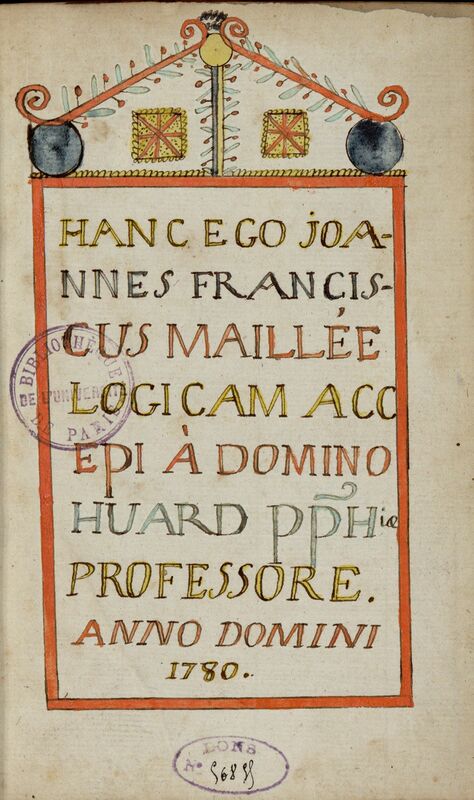 HANC EGO JOA-
NNES FRANCIS-
CUS MAILLÉE
LOGICAM ACC
EPI À DOMINO
HUARD PP̃Hiæ
PROFESSORE.
ANNO DOMINI
1780.
BIBLIOTHÈQUE
DE L'UNIVERSITÉ
DE PARIS
DONS
N°